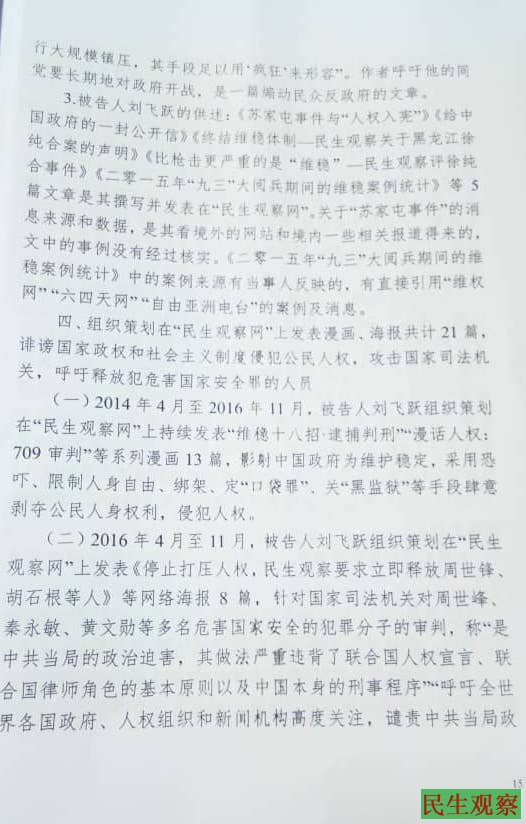 行大规模镇压，其手段足以用‘疯狂’来形容”。作者呼吁他的同
党要长期地对政府开战，是一篇煽动民众反政府的文章。
3.被告人刘飞跃的供述：《苏家屯事件与“人权入宪”》《给中
国政府的一封公开信》《终结维稳体制—民生观察关于黑龙江徐
纯合案的声明》《比枪击更严重的是“维稳”—民生观察评徐纯
合事件》《二零一五年“九三”大阅兵期间的维稳案例统计》等 5
篇文章是其撰写并发表在“民生观察网”。关于“苏家屯事件”的消
息来源和数据，是其看境外的网站和境内一些相关报道得来的，
文中的事例没有经过核实。《二零一五年“九三”大阅兵期间的维
稳案例统计》中的案例来源有当事人反映的，有直接引用“维权
网”“六四天网”“自由亚洲电台”的案例及消息。
四、组织策划在“民生观察网”上发表漫画、海报共计 21 篇，
诽谤国家政权和社会主义制度侵犯公民人权，攻击国家司法机
关，呼吁释放犯危害国家安全罪的人员
（一）2014 年 4 月至 2016 年 11 月，被告人刘飞跃组织策划
在“民生观察网”上持续发表“维稳十八招·逮捕判刑”“漫话人权：
709 审判”等系列漫画 13 篇，影射中国政府为维护稳定，采用恐
吓、限制人身自由、绑架、定“口袋罪”、关“黑监狱”等手段肆意
剥夺公民人身权利，侵犯人权。
（二）2016 年 4 月至 11 月，被告人刘飞跃组织策划在“民生
观察网”上发表《停止打压人权，民生观察要求立即释放周世锋、
胡石根等人》等网络海报 8 篇，针对国家司法机关对周世峰、
秦永敏、黄文勋等多名危害国家安全的犯罪分子的审判，称“是
中共当局的政治迫害，其做法严重违背了联合国人权宣言、联
合国律师角色的基本原则以及中国本身的刑事程序”“呼吁全世
界各国政府、人权组织和新闻机构高度关注，谴责中共当局政
15
民生观察